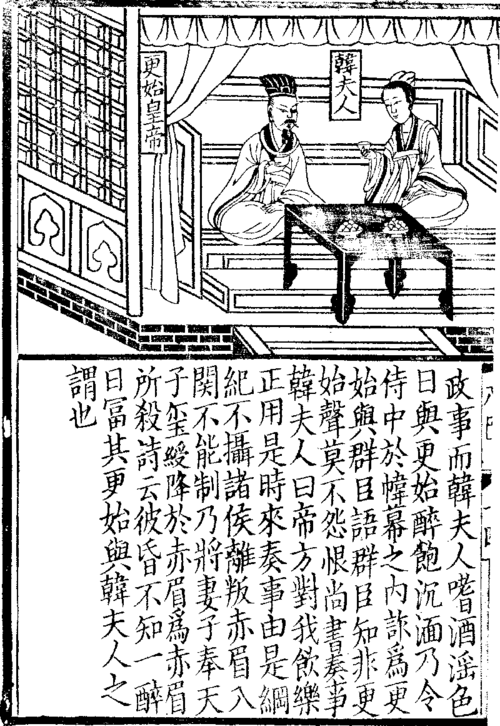 韓夫人
更始皇帝
政事而韓夫人嗜酒滛色
日與更始醉飽沉湎乃令
侍中於幃幕之內詐為更
始與群臣語群臣知非更
始聲莫不怨恨尚書奏事
韓夫人曰帝方對我飲樂
正用是時來奏事由是綱
紀不攝諸侯離叛赤眉入
関不能制乃將妻子奉天
子玺綬降於赤眉為赤眉
所殺詩云彼昏不知一醉
日冨其更始與韓夫人之
謂也